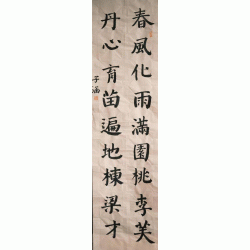 春風化雨滿園桃李笑
丹心育苗遍地棟梁才
子涵